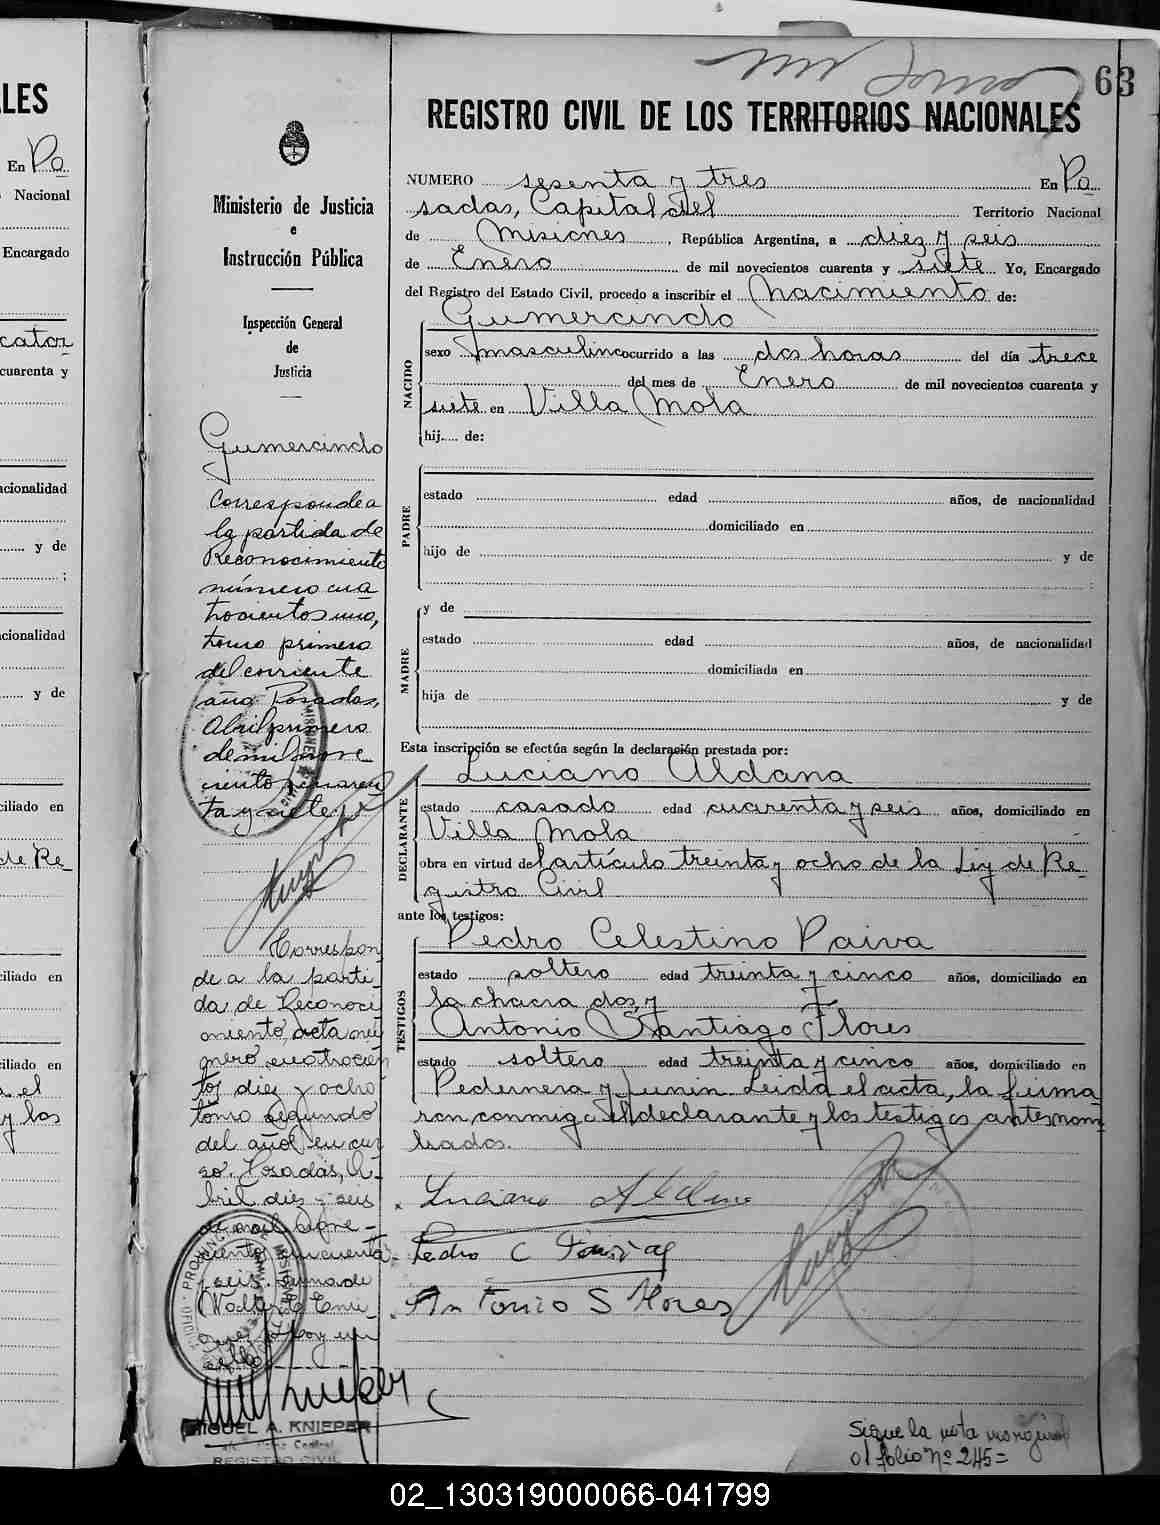 LES
En Po
Nacional
Encargado
cator
cuarenta y
acionalidad
y de
;
acionalidad
y de
ciliado en
de Re
ciliado en
ciliado en
el
y los
63
REGISTRO CIVIL DE LOS TERRITORIOS NACIONALES
Ministerio de Justicia
e
Instrucción Pública
Inspección General
de
Justicia
Gumercindo
Corresponde a
la partida de
Reconocimiento
número cua
trocientos uno,
tomo primero
del corriente
año. Posadas,
Abril primero
de mil nove
ciento cuaren
ta y siete
Correspon
de a la parti-
da de Reconoci
miento, acta nú
mero cuatrocien
tos diez y ocho
tomo segundo
del año en cur
so. Posadas, A-
bril diez y seis
de mil nove-
ciento cincuenta
y seis.
sello
MIGUEL A. KNIEPER
REGISTRO CIVIL
NUMERO sesenta y tres En Po
sadas, Capital del Territorio Nacional
de Misiones, República Argentina, a diez y seis
de Enero de mil novecientos cuarenta y siete Yo, Encargado
del Registro del Estado Civil, procedo a inscribir el Nacimiento de:
Gumercindo
NACIDO
sexo masculino ocurrido a las dos horas del día trece
del mes de Enero de mil novecientos cuarenta y
siete en Villa Mola
hij.... de:
PADRE
estado edad años, de nacionalidad
domiciliado en
hijo de y de
;
MADRE
y de
estado edad años, de nacionalidad
domiciliada en
hija de y de
Esta inscripción se efectúa según la declaración prestada por:
Luciano Aldana
DECLARANTE
estado casado edad cuarenta y seis años, domiciliado en
Villa Mola
obra en virtud del artículo treinta y ocho de la Ley de Re-
gistro Civil
ante los testigos:
Pedro Celestino Paiva
TESTIGOS
estado soltero edad treinta y cinco años, domiciliado en
la chacra dos, y
Antonio Santiago Flores
estado soltero edad treinta y cinco años, domiciliado en
Pedernera y Junin. Leida el acta, la firma-
ron conmigo el declarante y los testigos antes nom-
brados.
Luciano Aldana
Pedro C
Antonio S Flores
Sigue la nota marginal
al folio Nº 245=
02_130319000066-041799